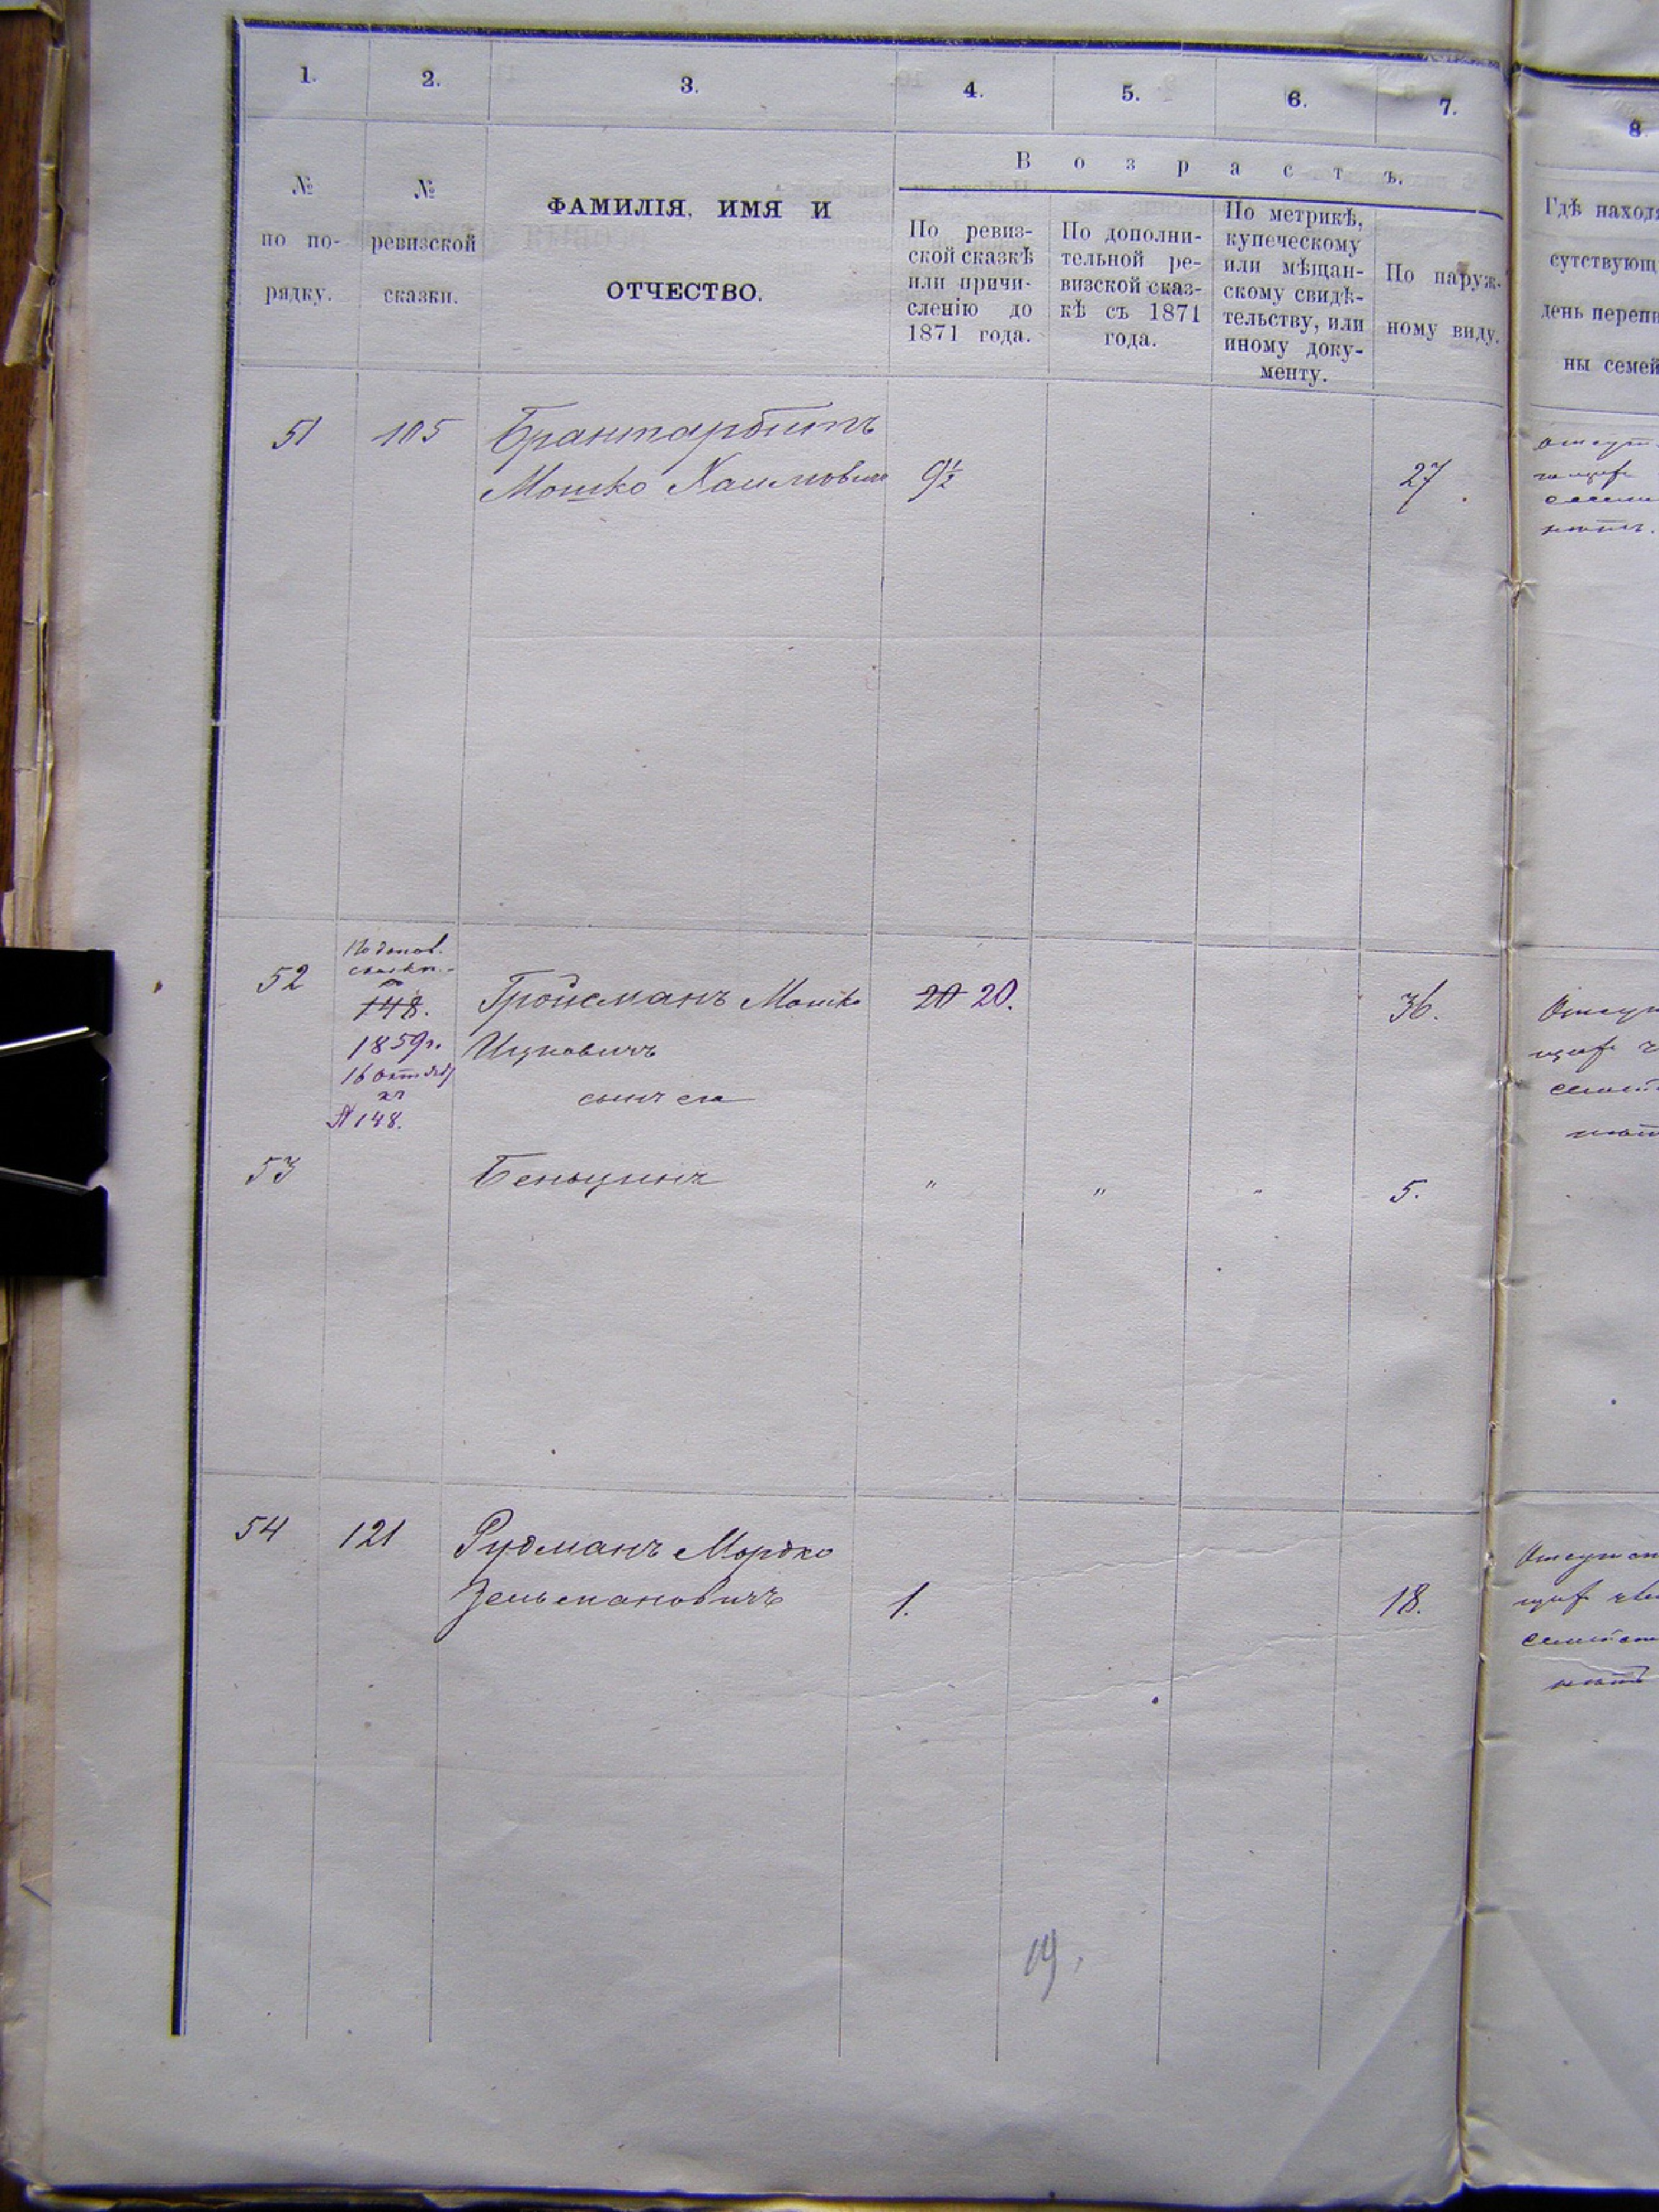 1. 2. 3. 4. 5. 6. 7. 8.
В о з р а с т ъ.
№ по по- рядку.
№ ревизской сказки.
ФАМИЛІЯ, ИМЯ И
ОТЧЕСТВО.
По ревиз-
ской сказкѣ
или причи-
сленію до
1871 года.
По дополни-
тельной ре-
визской сказ-
кѣ съ 1871
года.
По метрикѣ,
купеческому
или мѣщан-
скому свидѣ-
тельству, или
иному доку-
менту.
По наруж-
ному виду.
Гдѣ наход
сутствующ
день переп
ны семей
51 105 Брантарбитъ
Мошко Хаимович 9½ 27
52 148. Гройсманъ Мошко 20 20. 36.
1859г. Ицковичъ
16 октяб
№ 148.
сынъ его
53 Беньцинъ " " " 5.
54 121 Рудманъ Мордко
Зельмановичъ 1. 18.
19.